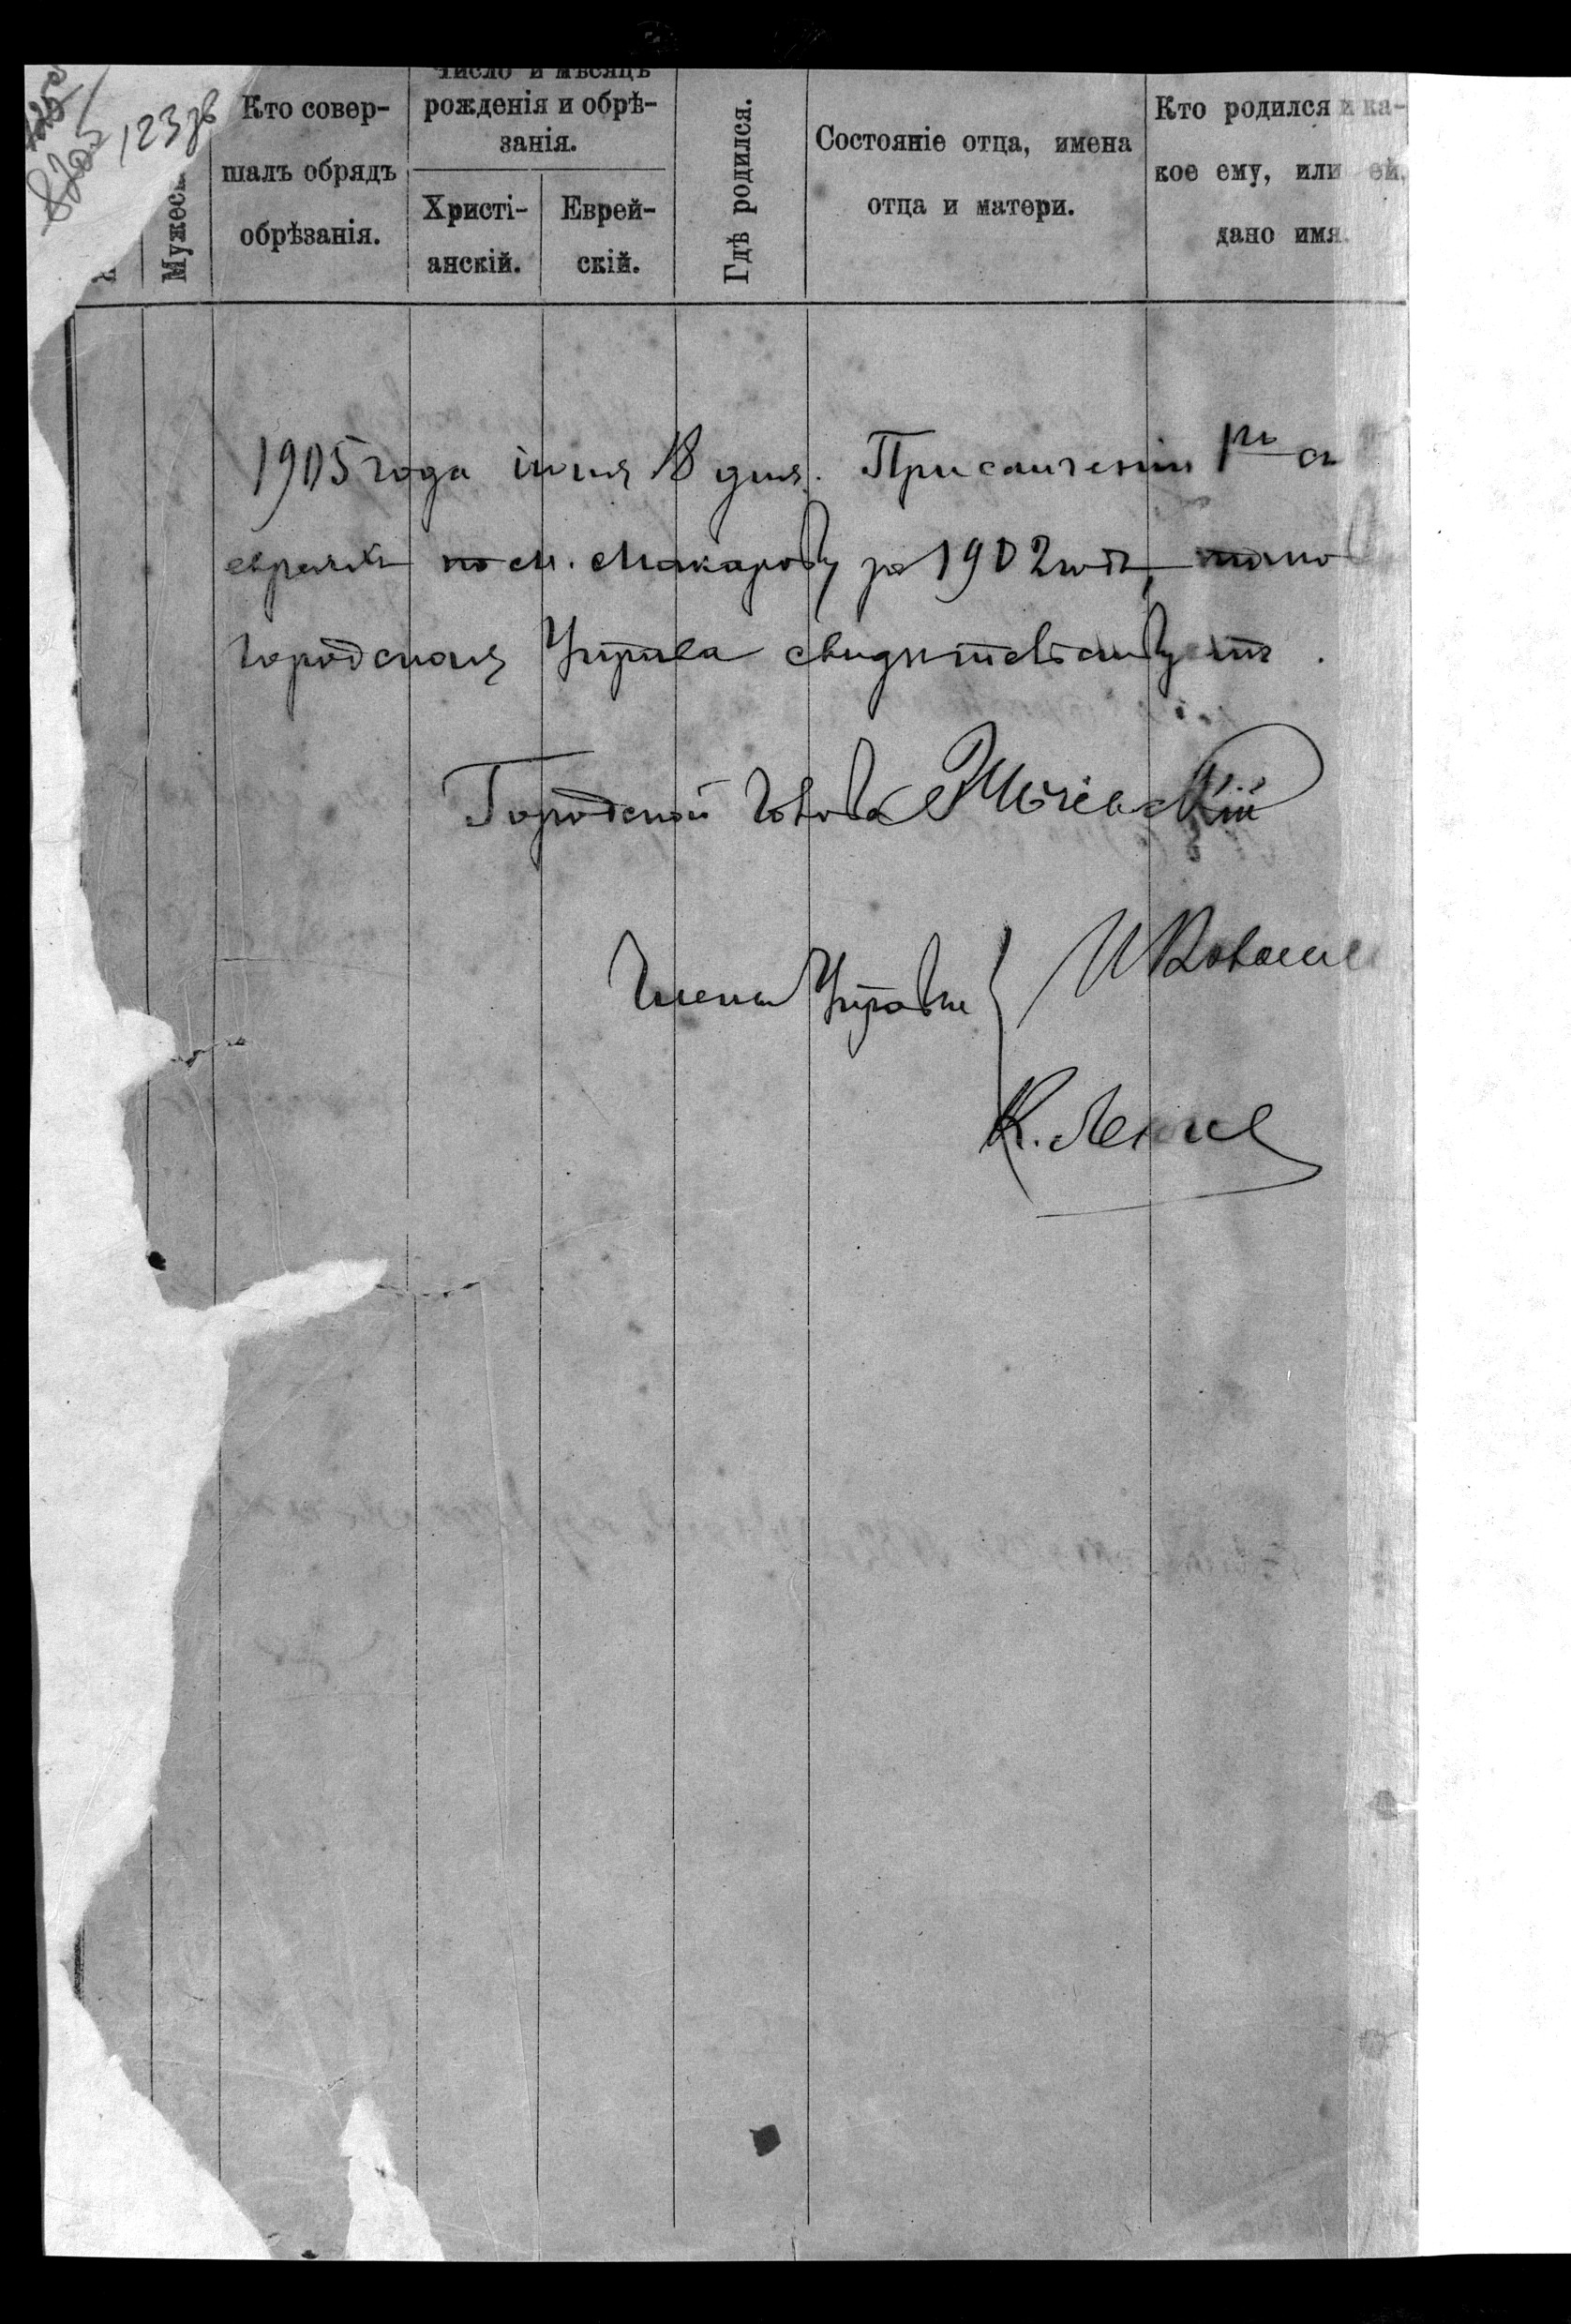 123 зв
Мужеск
Кто совер-
шалъ обрядъ
обрѣзанія.
Число и мѣсяцъ
рожденія и обрѣ-
занія.
Христі-
анскій.
Еврей-
скій.
Гдѣ родился.
Состояніе отца, имена
отца и матери.
Кто родился и ка-
кое ему, или ей,
дано имя.
1905 года іюня 18 дня. При
евреяхъ по м. Макарову за 1902 годъ,
Городская Управа свидѣтельствуетъ.
Городской Голова
Члены Управы
К.